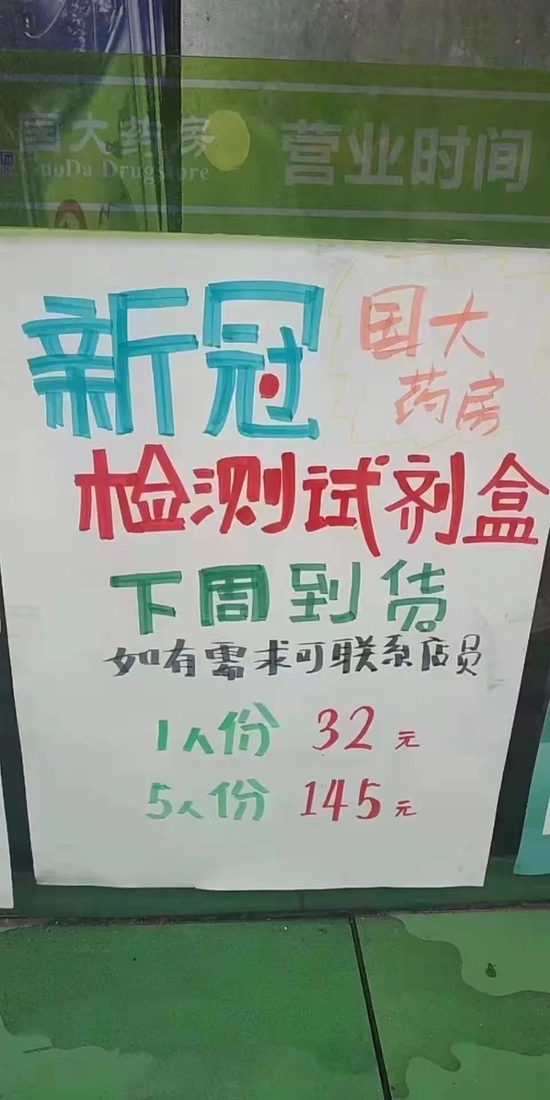 国大药房
GuoDa Drugstore
营业时间
新冠
国大
药房
检测试剂盒
下周到货
如有需求可联系店员
1人份 32元
5人份 145元